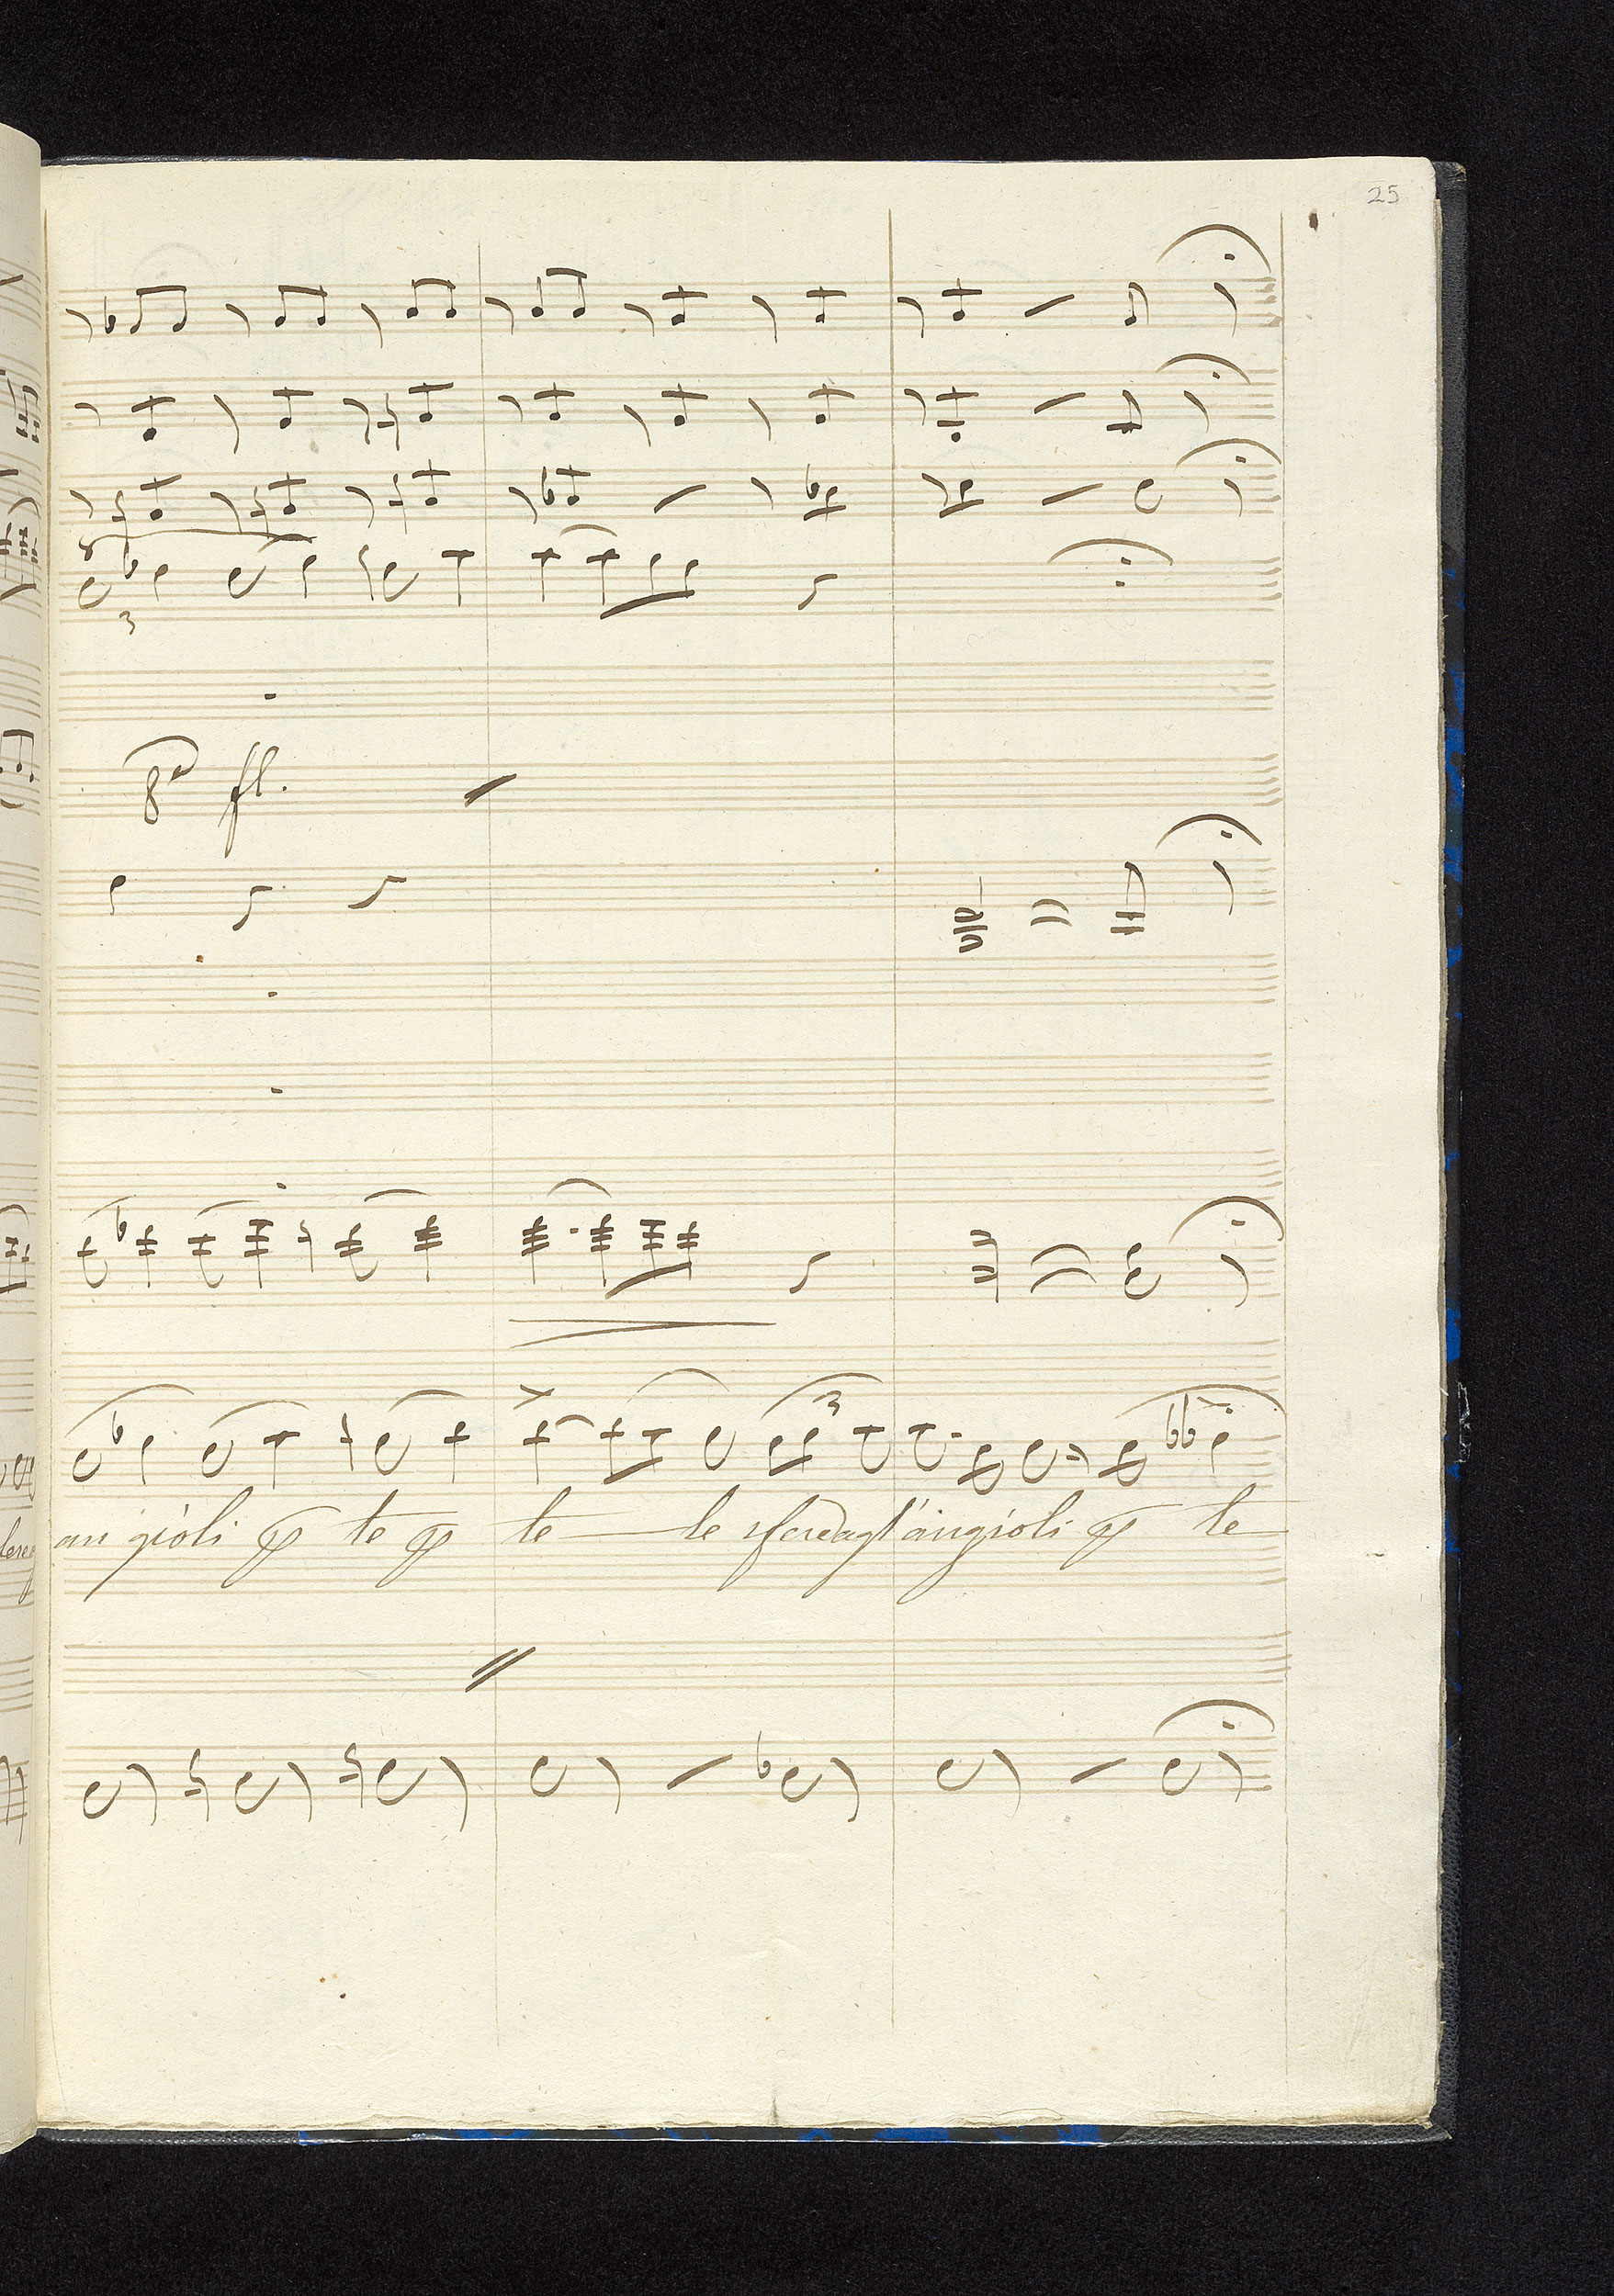 25
3
8ª fl.
3
an gioli p te p te le sfere agl'angioli p te